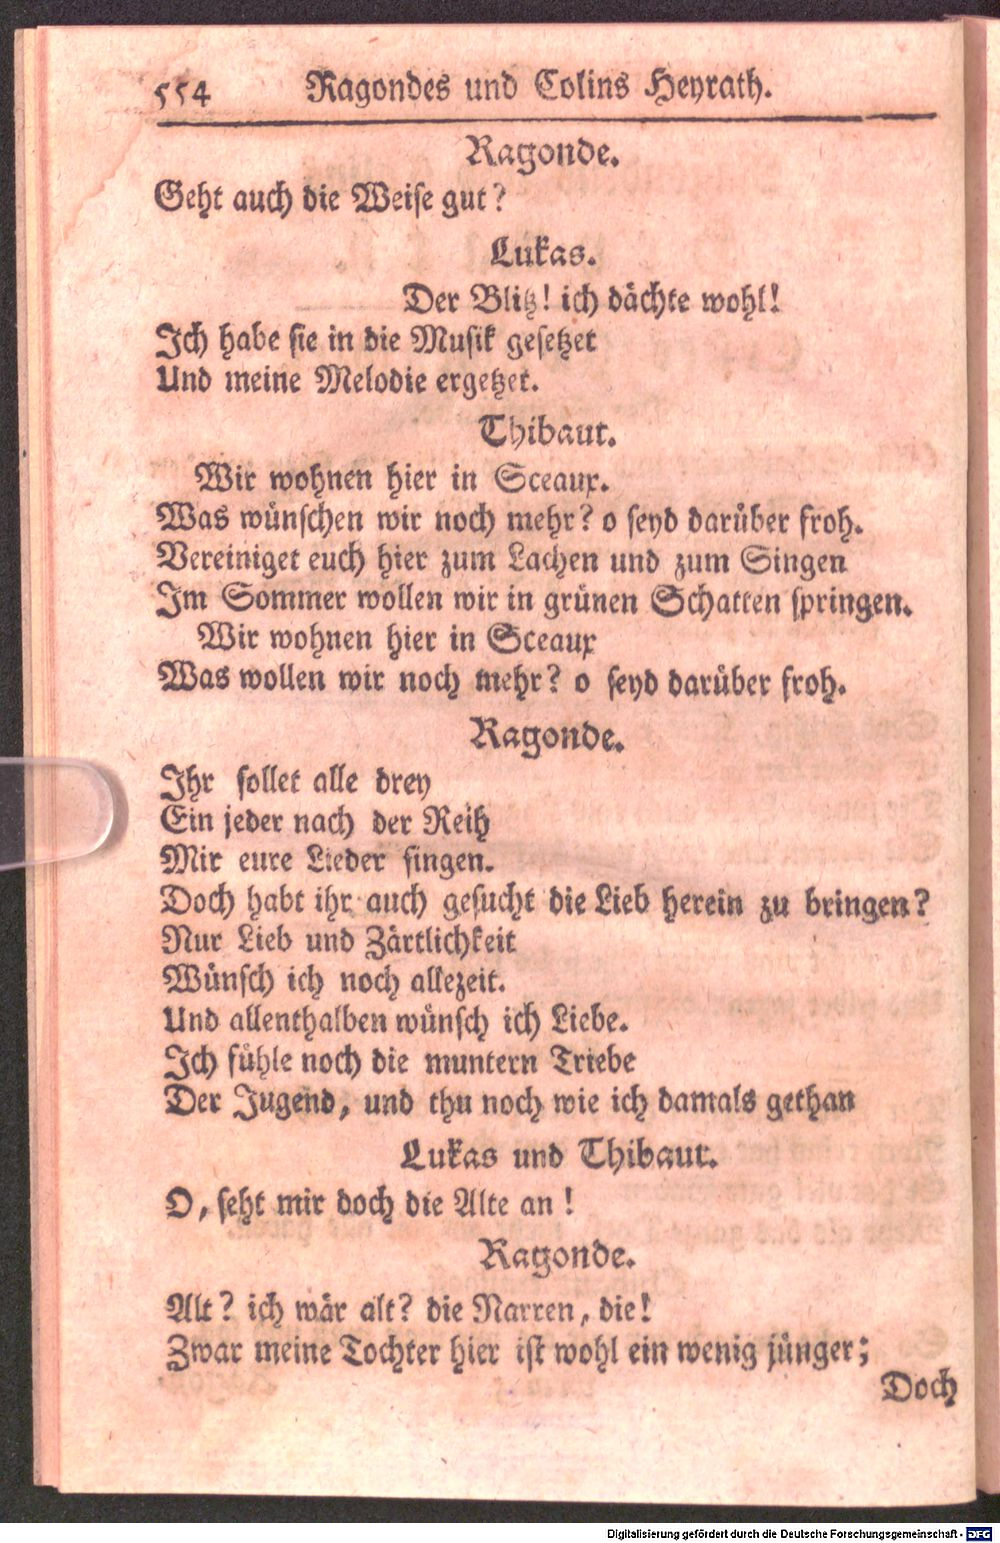 554 Ragondes und Colins Heyrath.
Ragonde.
Geht auch die Weise gut?
Lukas.
Der Blitz! ich dächte wohl!
Ich habe sie in die Musik gesetzet
Und meine Melodie ergetzet.
Thibaut.
Wir wohnen hier in Sceaux.
Was wünschen wir noch mehr? o seyd darüber froh.
Vereiniget euch hier zum Lachen und zum Singen
Im Sommer wollen wir in grünen Schatten springen.
Wir wohnen hier in Sceaux
Was wollen wir noch mehr? o seyd darüber froh.
Ragonde.
Ihr sollet alle drey
Ein jeder nach der Reih
Mir eure Lieder singen.
Doch habt ihr auch gesucht die Lieb herein zu bringen?
Nur Lieb und Zärtlichkeit
Wünsch ich noch allezeit.
Und allenthalben wünsch ich Liebe.
Ich fühle noch die muntern Triebe
Der Jugend, und thu noch wie ich damals gethan
Lukas und Thibaut.
O, seht mir doch die Alte an!
Ragonde.
Alt? ich wär alt? die Narren, die!
Zwar meine Tochter hier ist wohl ein wenig jünger;
Doch
Digitalisierung gefördert durch die Deutsche Forschungsgemeinschaft - DFG